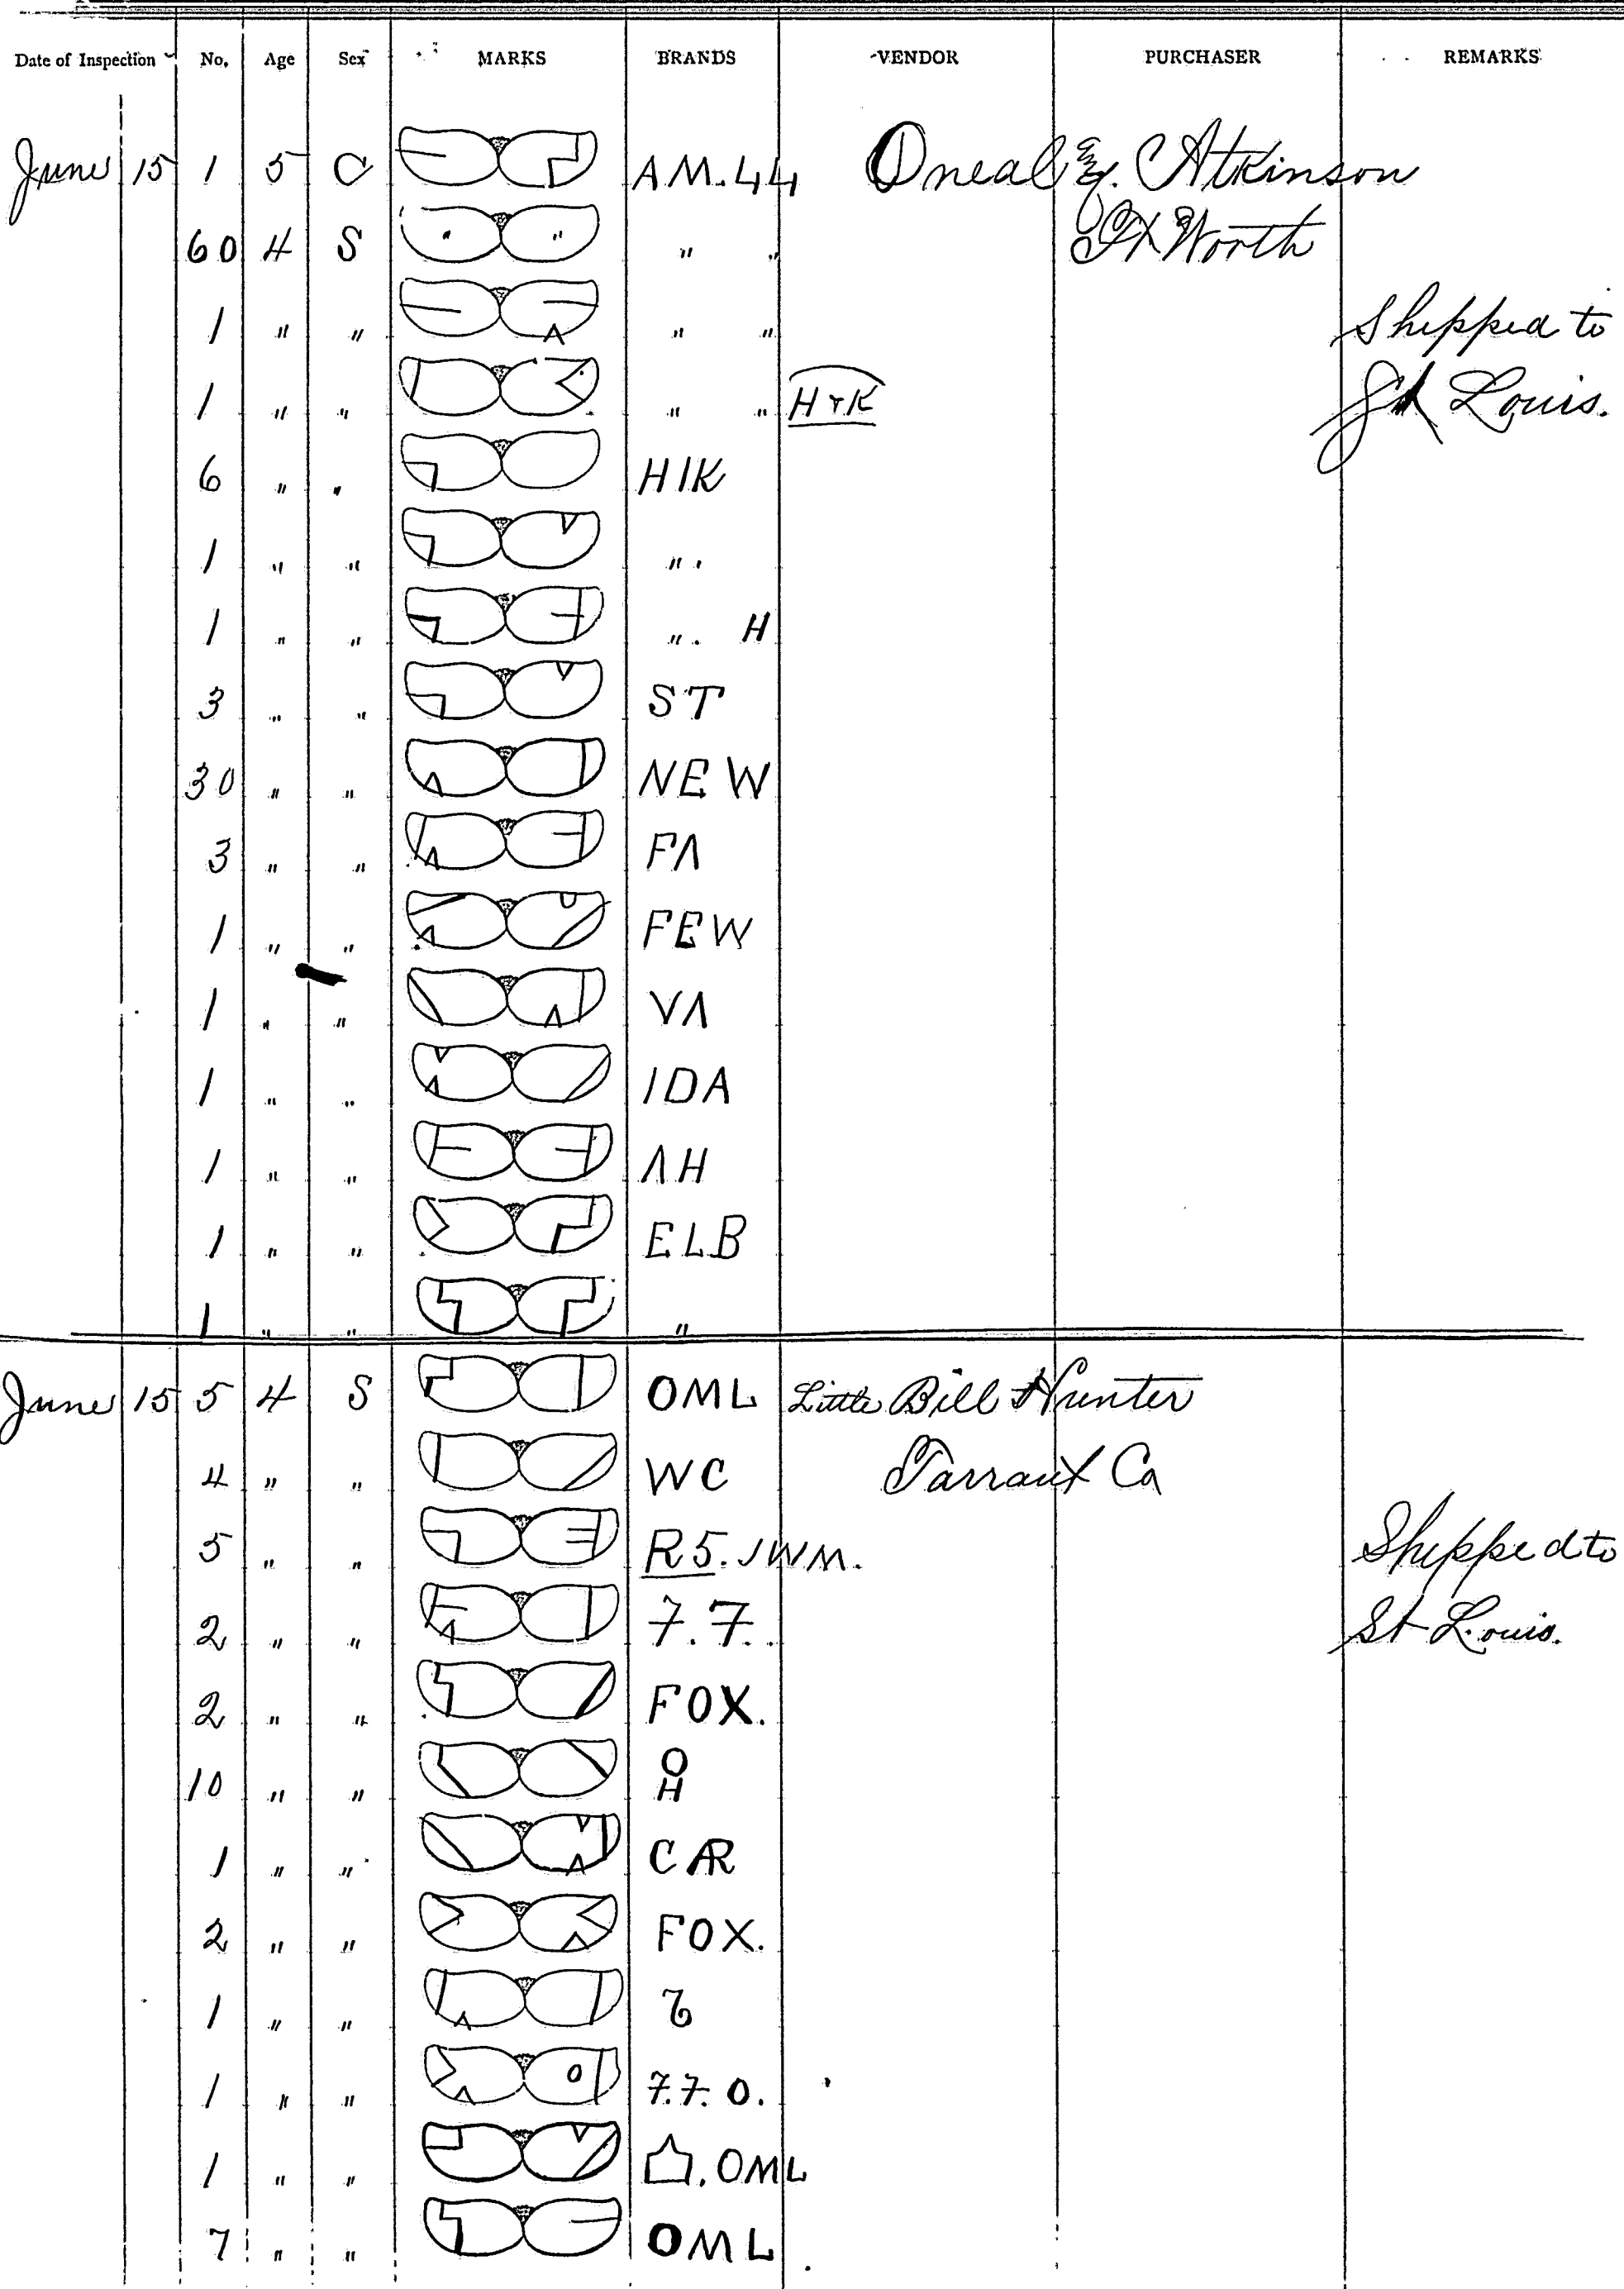 Date of Inspection No. Age Sex MARKS BRANDS VENDOR PURCHASER REMARKS
June 15 1 5 C AM.44 Oneal &. Atkinson
60 4 S " " Ft Worth
1 " " " " Shipped to
1 " " " " H+K St Louis.
6 " " HIK
1 " " "
1 " " " H
3 " " ST
30 " " NEW
3 " " FΛ
1 " " FEW
1 " " VΛ
1 " " IDA
1 " " ΛH
1 " " ELB
1 " " "
June 15 5 4 S OML Little Bill Hunter
4 " " WC Tarrant Co
5 " " R5. JWM. Shipped to
2 " " 7.7. St Louis.
2 " " FOX.
10 " " O
H
1 " " CAR
2 " " FOX.
1 " "
1 " " 7.7. O.
1 " " . OML
7 " " OML